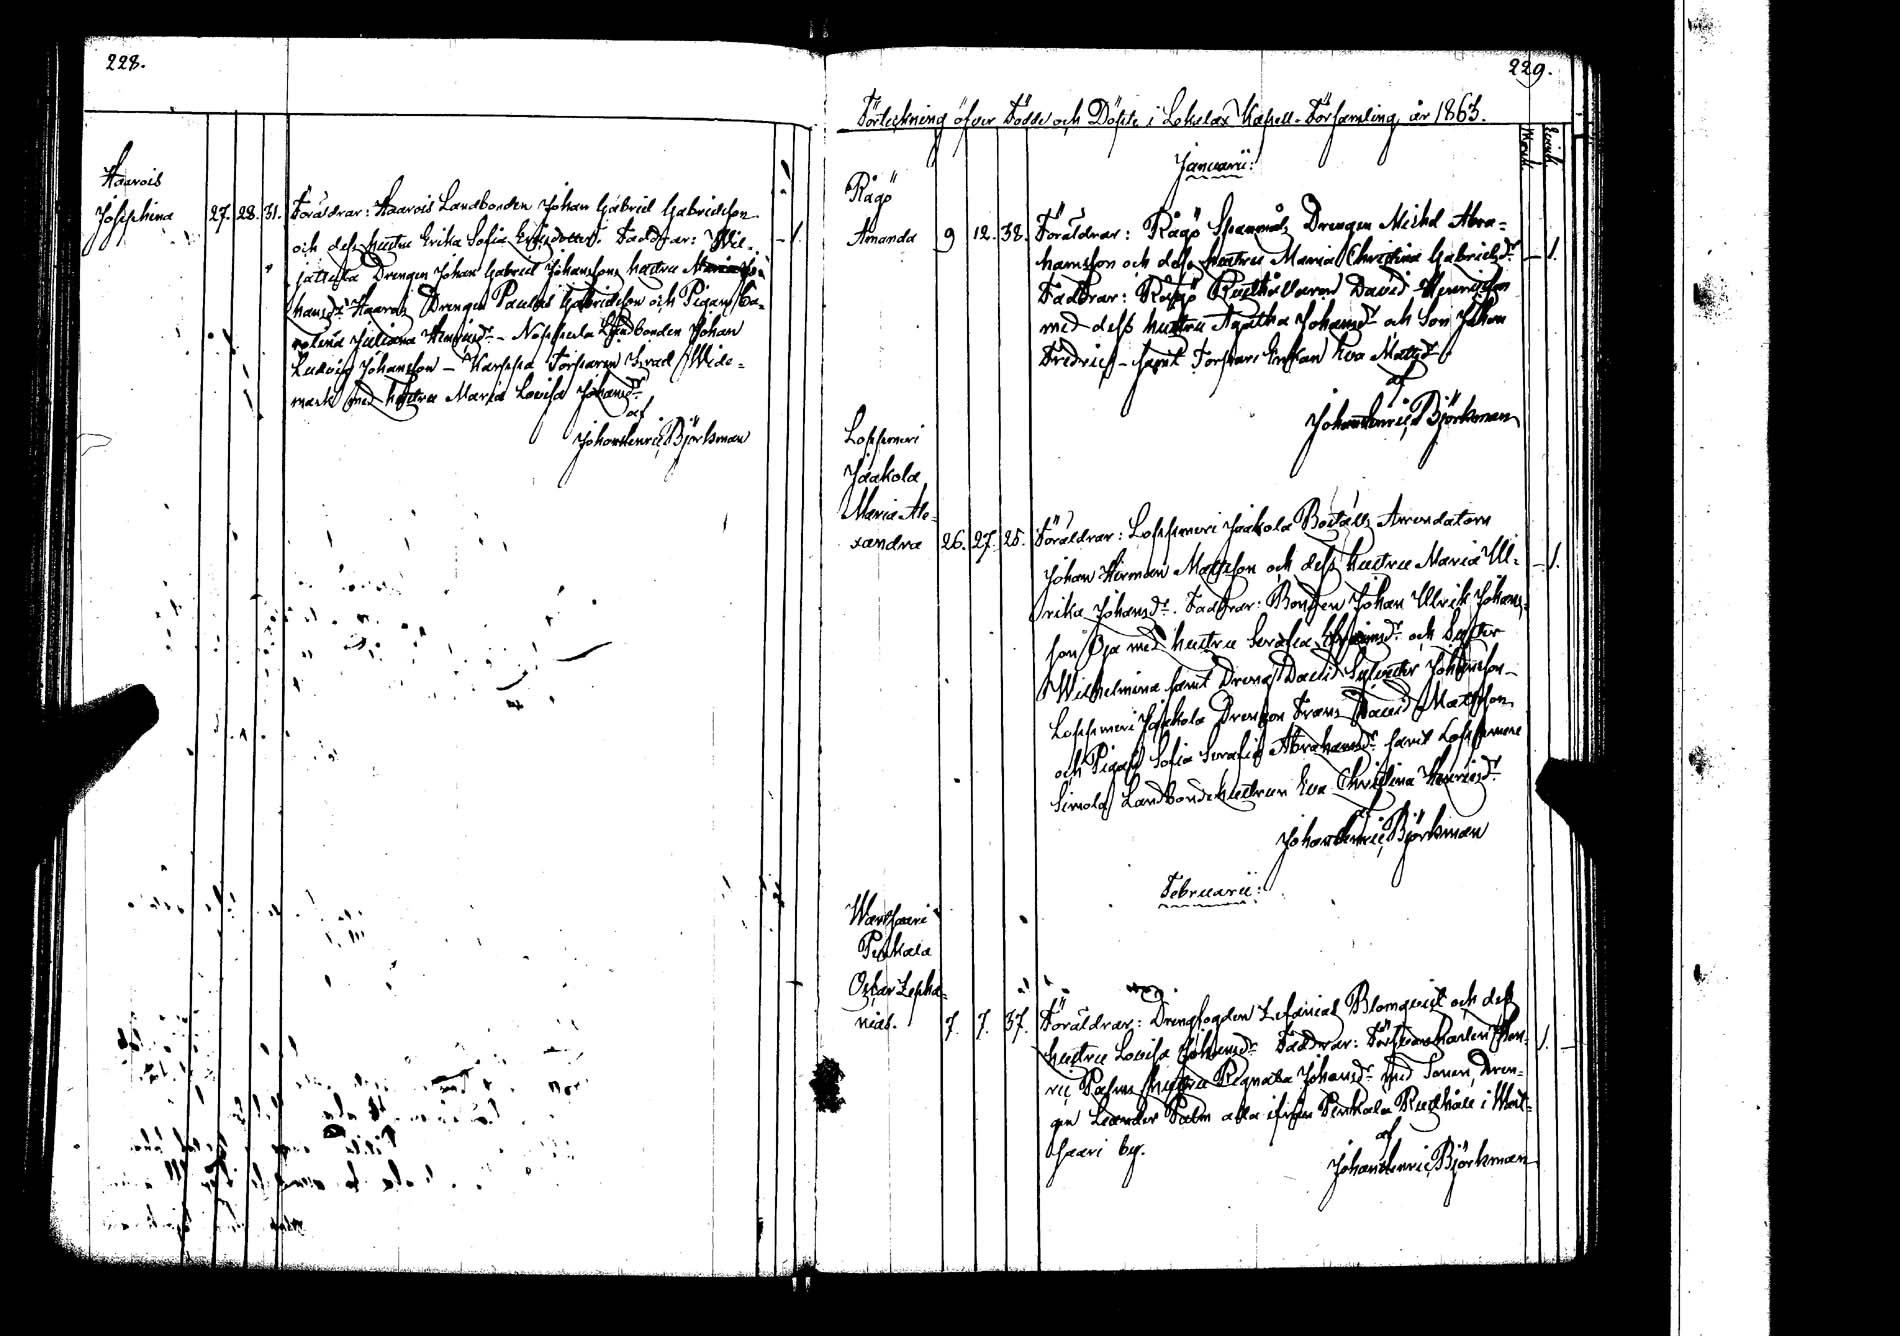 228.
Haarois
Josephina 27. 28. 31. Föräldrar: Haarois Landbonden Johan Gabriel Gabrielsson
och dess hustru Erika Sofia Faddrar: Wil- 1.
Drengen Johan Gabriel Johanssons hustru
hansdr Haarois Drengen Paulus Gabrielsson och Pigan Ca-
rolina Juliana Henricsdr - Landbonden Johan
Ludvig Johansson - Karppa Torparen Wide-
mark med hustru Maria Lovisa Johansdr
af
Johan Henric Björkman
229.
Förteckning öfver Födde och Döpte i Lokalax Kapell-Församling år 1863.
Januarii:
Rågö
Amanda 9 12. 38. Föräldrar: Rågö Spanmåls Drengen Mickel Abra-
hamsson och dess hustru Maria Christina Gabrielsdr 1.
Faddrar: Rågö Rusthållaren David Henricsson
med dess hustru Agatha Johansdr och Son Johan
Fredric - samt Torpare Enkan Eva Mattsdr
af
Johan Henric Björkman
Loppmeri
Jaakola
Maria Ale-
xandra 26. 27. 25. Föräldrar: Loppmeri Jaakola Boställs Arrendatorn
Johan Herman Mattsson och dess hustru Maria Ul- 1.
rika Johansdr. Faddrar: Bonden Johan Ulrik Johans-
son Öja med hustru Serafia och Syster
Wilhelmina samt Dreng David Sylvester Johansson
Loppmeri Jaakola Drengen Frans David Mattsson
och Pigan Sofia Serafia Abrahamsdr samt Loppmeri
Simola Landbondehustrun Eva Christina Henricsdr
af
Johan Henric Björkman
Februarii:
Wartsaari
Penkala
Oscar Zepha-
nias. 7. 7. 37. Föräldrar: Drengfogden Zefanias Blomqvist och dess
hustru Lovisa Johansdr Faddrar: Hen- 1.
ric Palms hustru Regnata Johansdr med Sonen Dren-
gen Leander Palm alla ifrån Penkala Rusthåll i Wart-
saari by.
af
Johan Henric Björkman